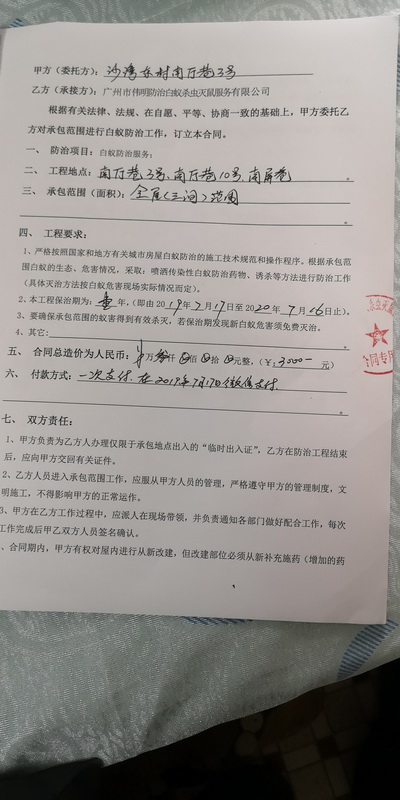 甲方（委托方）：沙湾东村南厅巷3号
乙方（承接方）：广州市伟明防治白蚁杀虫灭鼠服务有限公司
根据有关法律、法规、在自愿、平等、协商一致的基础上，甲方委托乙
方对承包范围进行白蚁防治工作，订立本合同。
一、 防治项目：白蚁防治服务；
二、 工程地点：南厅巷3号、南厅巷10号、南屏巷
三、 承包范围（面积）：全屋（三间）范围
四、 工程要求：
1、严格按照国家和地方有关城市房屋白蚁防治的施工技术规范和操作程序。根据承包范
围白蚁的生态、危害情况，采取：喷洒传染性白蚁防治药物、诱杀等方法进行防治工作
（具体灭治方法按白蚁危害现场实际情况而定）。
2、本工程保治期为：壹年，（即由2019年7月17日至2020年7月16日止）。
3、要确保承包范围的蚁害得到有效杀灭，若保治期发现新白蚁危害须免费灭治。
4、其它：
五、 合同总造价为人民币：万叁仟佰拾元整，（¥：3000- 元）
六、 付款方式：一次支付.在2019年7月17日微信支付.
七、 双方责任：
1、甲方负责为乙方人办理仅限于承包地点出入的“临时出入证”，乙方在防治工程结束
后，应向甲方交回有关证件。
2、乙方人员进入承包范围工作，应服从甲方人员的管理，严格遵守甲方的管理制度，文
明施工，不得影响甲方的正常运作。
3、甲方在乙方工作过程中，应派人在现场带领，并负责通知各部门做好配合工作，每次
工作完成后甲乙双方人员签名确认。
、合同期内，甲方有权对屋内进行从新改建，但改建部位必须从新补充施药（增加的药